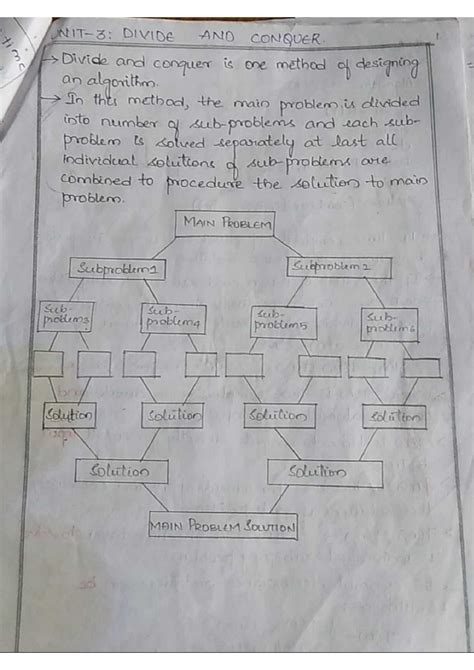 UNIT-3: DIVIDE AND CONQUER.
→ Divide and conquer is one method of designing
an algorithm.
→ In this method, the main problem is divided
into number of sub-problems and each sub-
problem is solved separately at last all
individual solutions of sub-problems are
combined to procedure the solution to main
problem.
MAIN PROBLEM
Subproblem1 Subproblem2
Sub- Sub- Sub- Sub-
problem3 problem4 problem5 problem6
Solution Solution Solution Solution
Solution Solution
MAIN PROBLEM SOLUTION